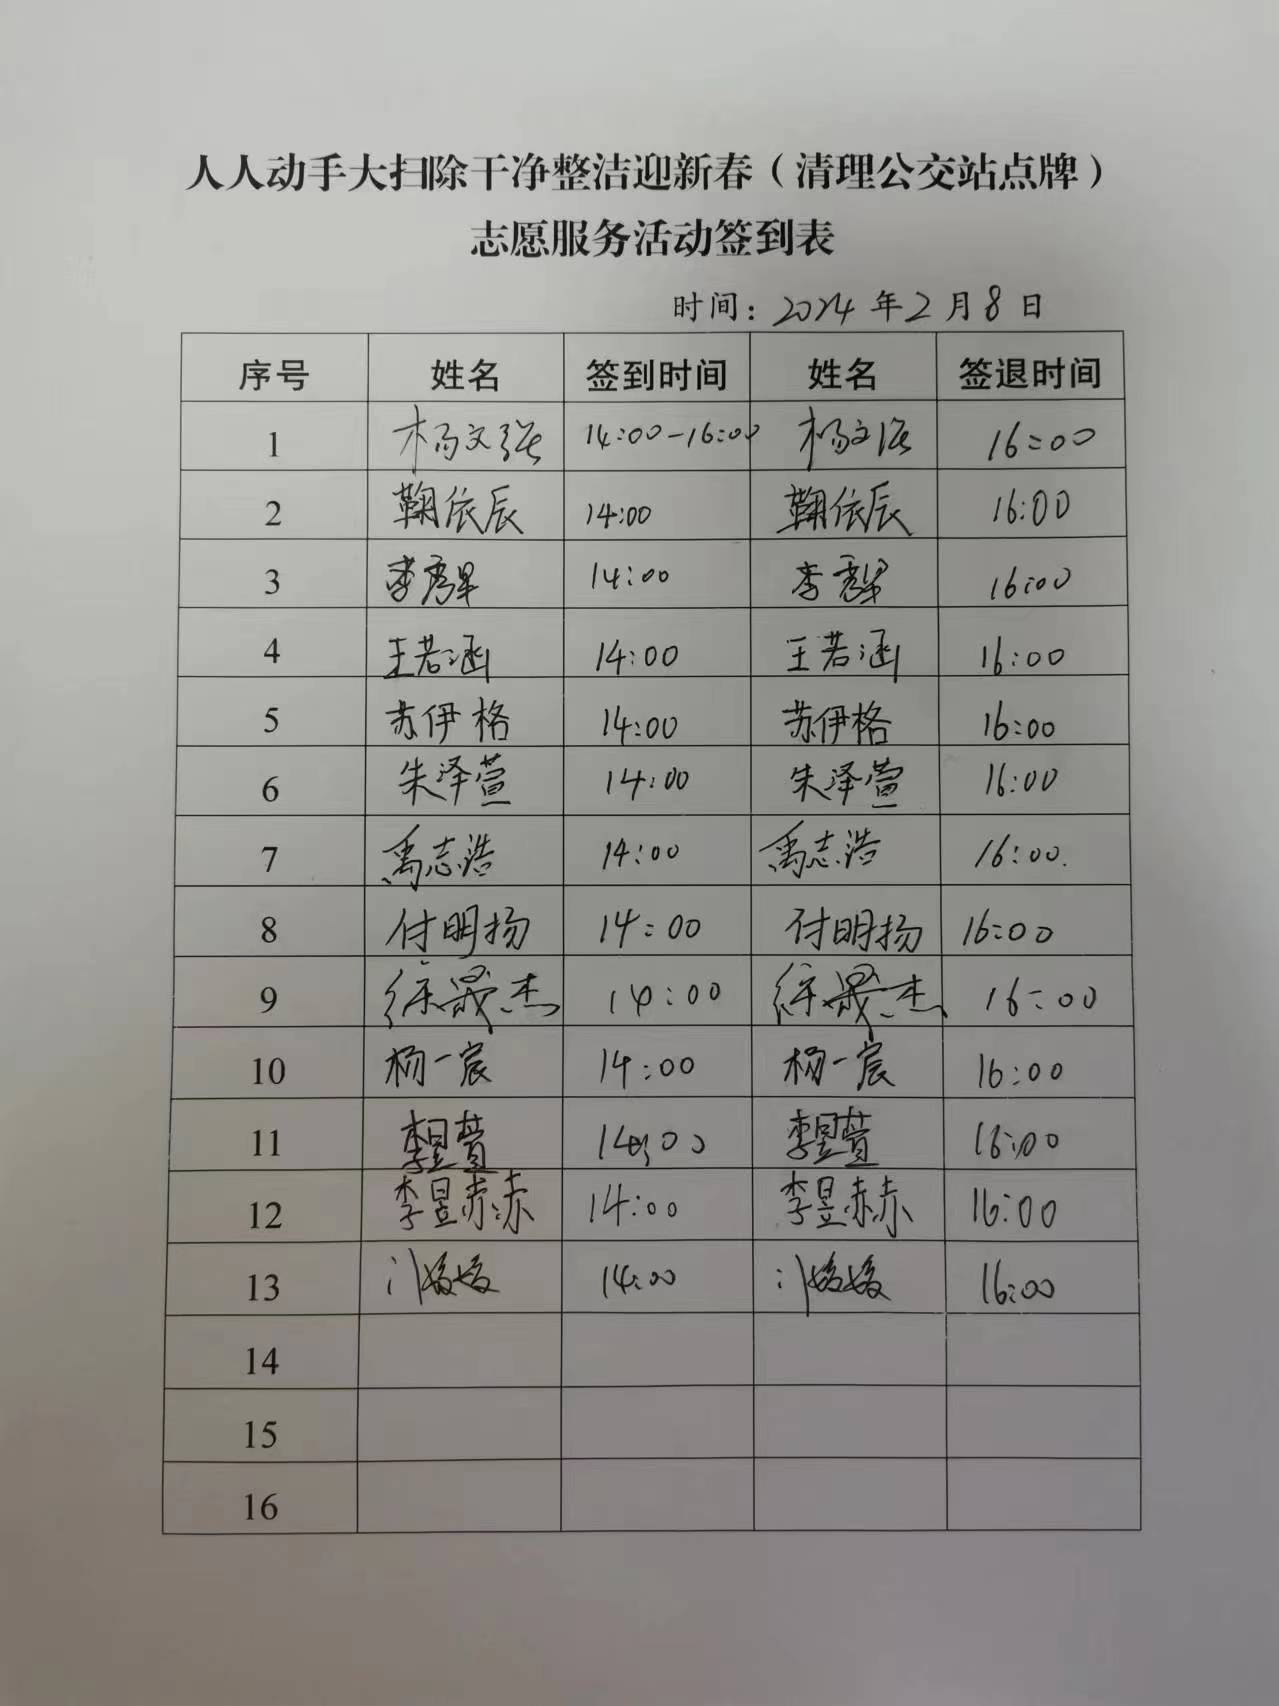 人人动手大扫除干净整洁迎新春（清理公交站点牌）
志愿服务活动签到表
时间：2024年2月8日
序号 姓名 签到时间 姓名 签退时间
1 杨文强 14:00-16:00 杨文强 16:00
2 鞠依辰 14:00 鞠依辰 16:00
3 李 14:00 李 16:00
4 王若涵 14:00 王若涵 16:00
5 苏伊格 14:00 苏伊格 16:00
6 朱泽萱 14:00 朱泽萱 16:00
7 禹志浩 14:00 禹志浩 16:00.
8 付明扬 14:00 付明扬 16:00
9 徐晟杰 14:00 徐晟杰 16:00
10 杨一宸 14:00 杨一宸 16:00
11 李昱萱 14:00 李昱萱 16:00
12 李昱赫 14:00 李昱赫 16:00
13 14:00 16:00
14
15
16